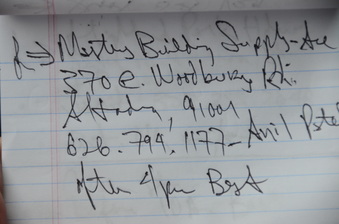 Building Supply - Ace
370 E. Woodbury Rd.
Altadena, 91001
626.794.1177 -
After 4pm Best